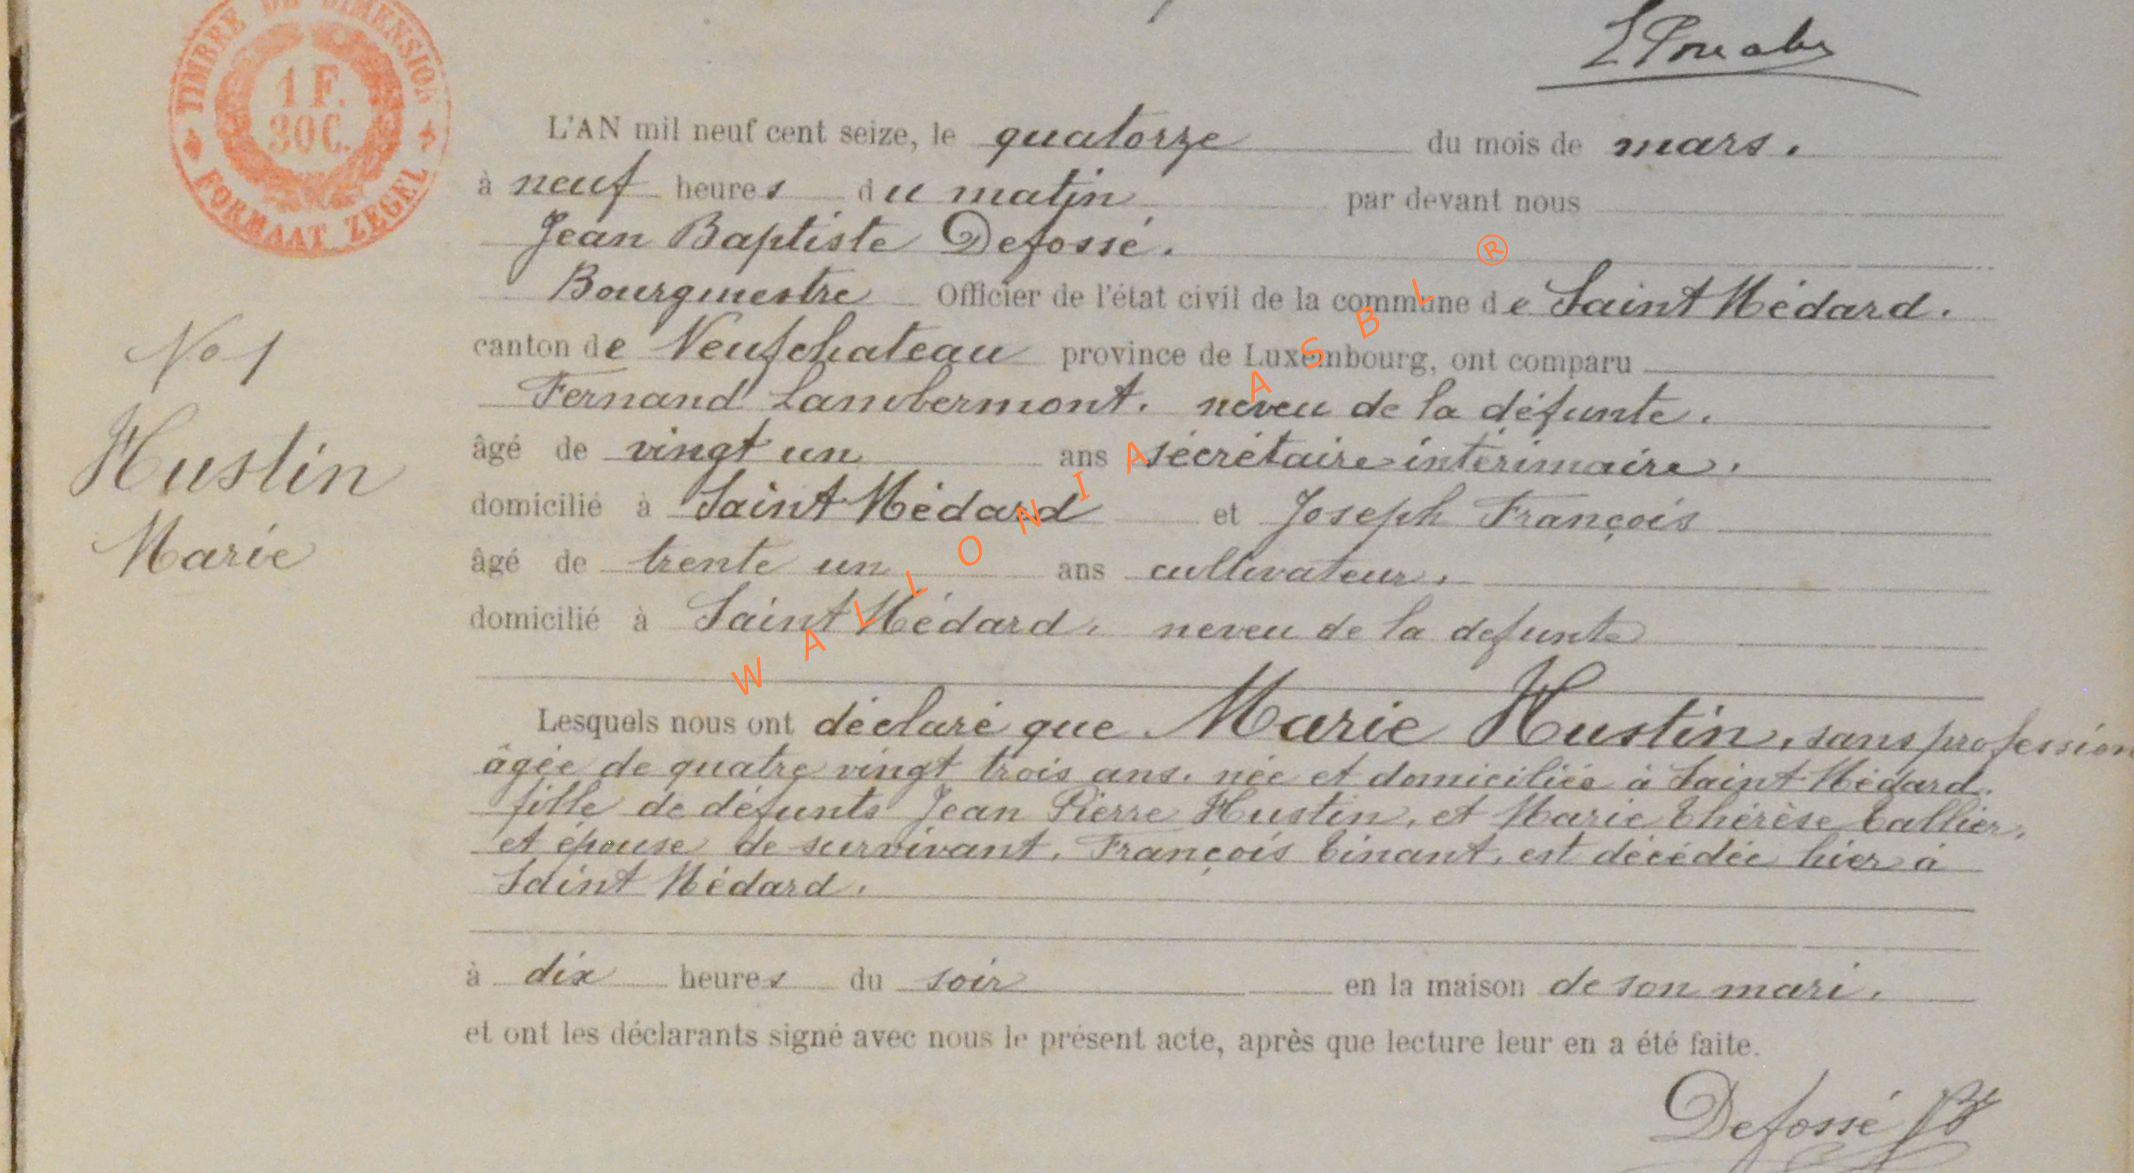 TIMBRE DE DIMENSION
1 F.
30 C.
FORMAAT ZEGEL
L'AN mil neuf cent seize, le quatorze du mois de mars.
à neuf heures du matin par devant nous
Jean Baptiste Defossé.
Bourgmestre Officier de l'état civil de la commune de Saint Médard.
No 1
canton de Neufchateau province de Luxembourg, ont comparu
Fernand Lambermont. neveu de la défunte.
Hustin
âgé de vingt un ans sécrétaire intérimaire.
domicilié à Saint Médard et Joseph François
Marie
âgé de trente un ans cultivateur.
domicilié à Saint Médard. neveu de la defunte
WALLONIA ASBL ®
Lesquels nous ont déclaré que Marie Hustin, sans profession
âgée de quatre vingt trois ans. née et domiciliée à Saint Médard.
fille de défunts Jean Pierre Hustin, et Marie Thérèse Tallier,
et épouse de survivant, François Tinant, est décédée hier à
Saint Médard.
à dix heures du soir en la maison de son mari.
et ont les déclarants signé avec nous le présent acte, après que lecture leur en a été faite.
Defossé